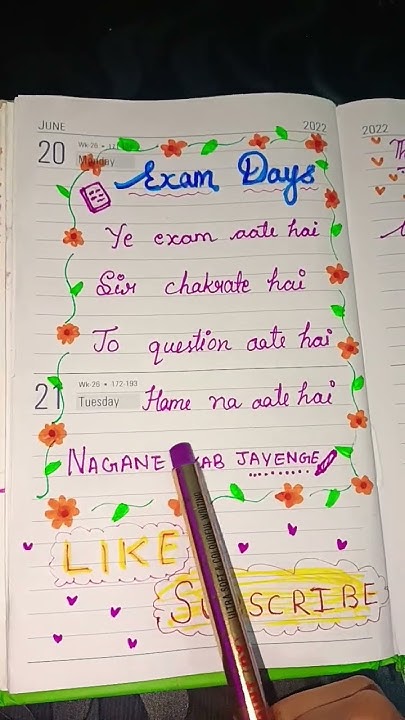 JUNE 2022
20 Wk-26 • 171
Monday
Exam Days
Ye exam aate hai
Sir chakrate hai
Jo question aate hai
21 Wk-26 • 172-193
Tuesday
Hame na aate hai
NAGANE KAB JAYENGE
LIKE
SUBSCRIBE
2022
Th
ULTRA SOFT & COLOURFUL WRITING